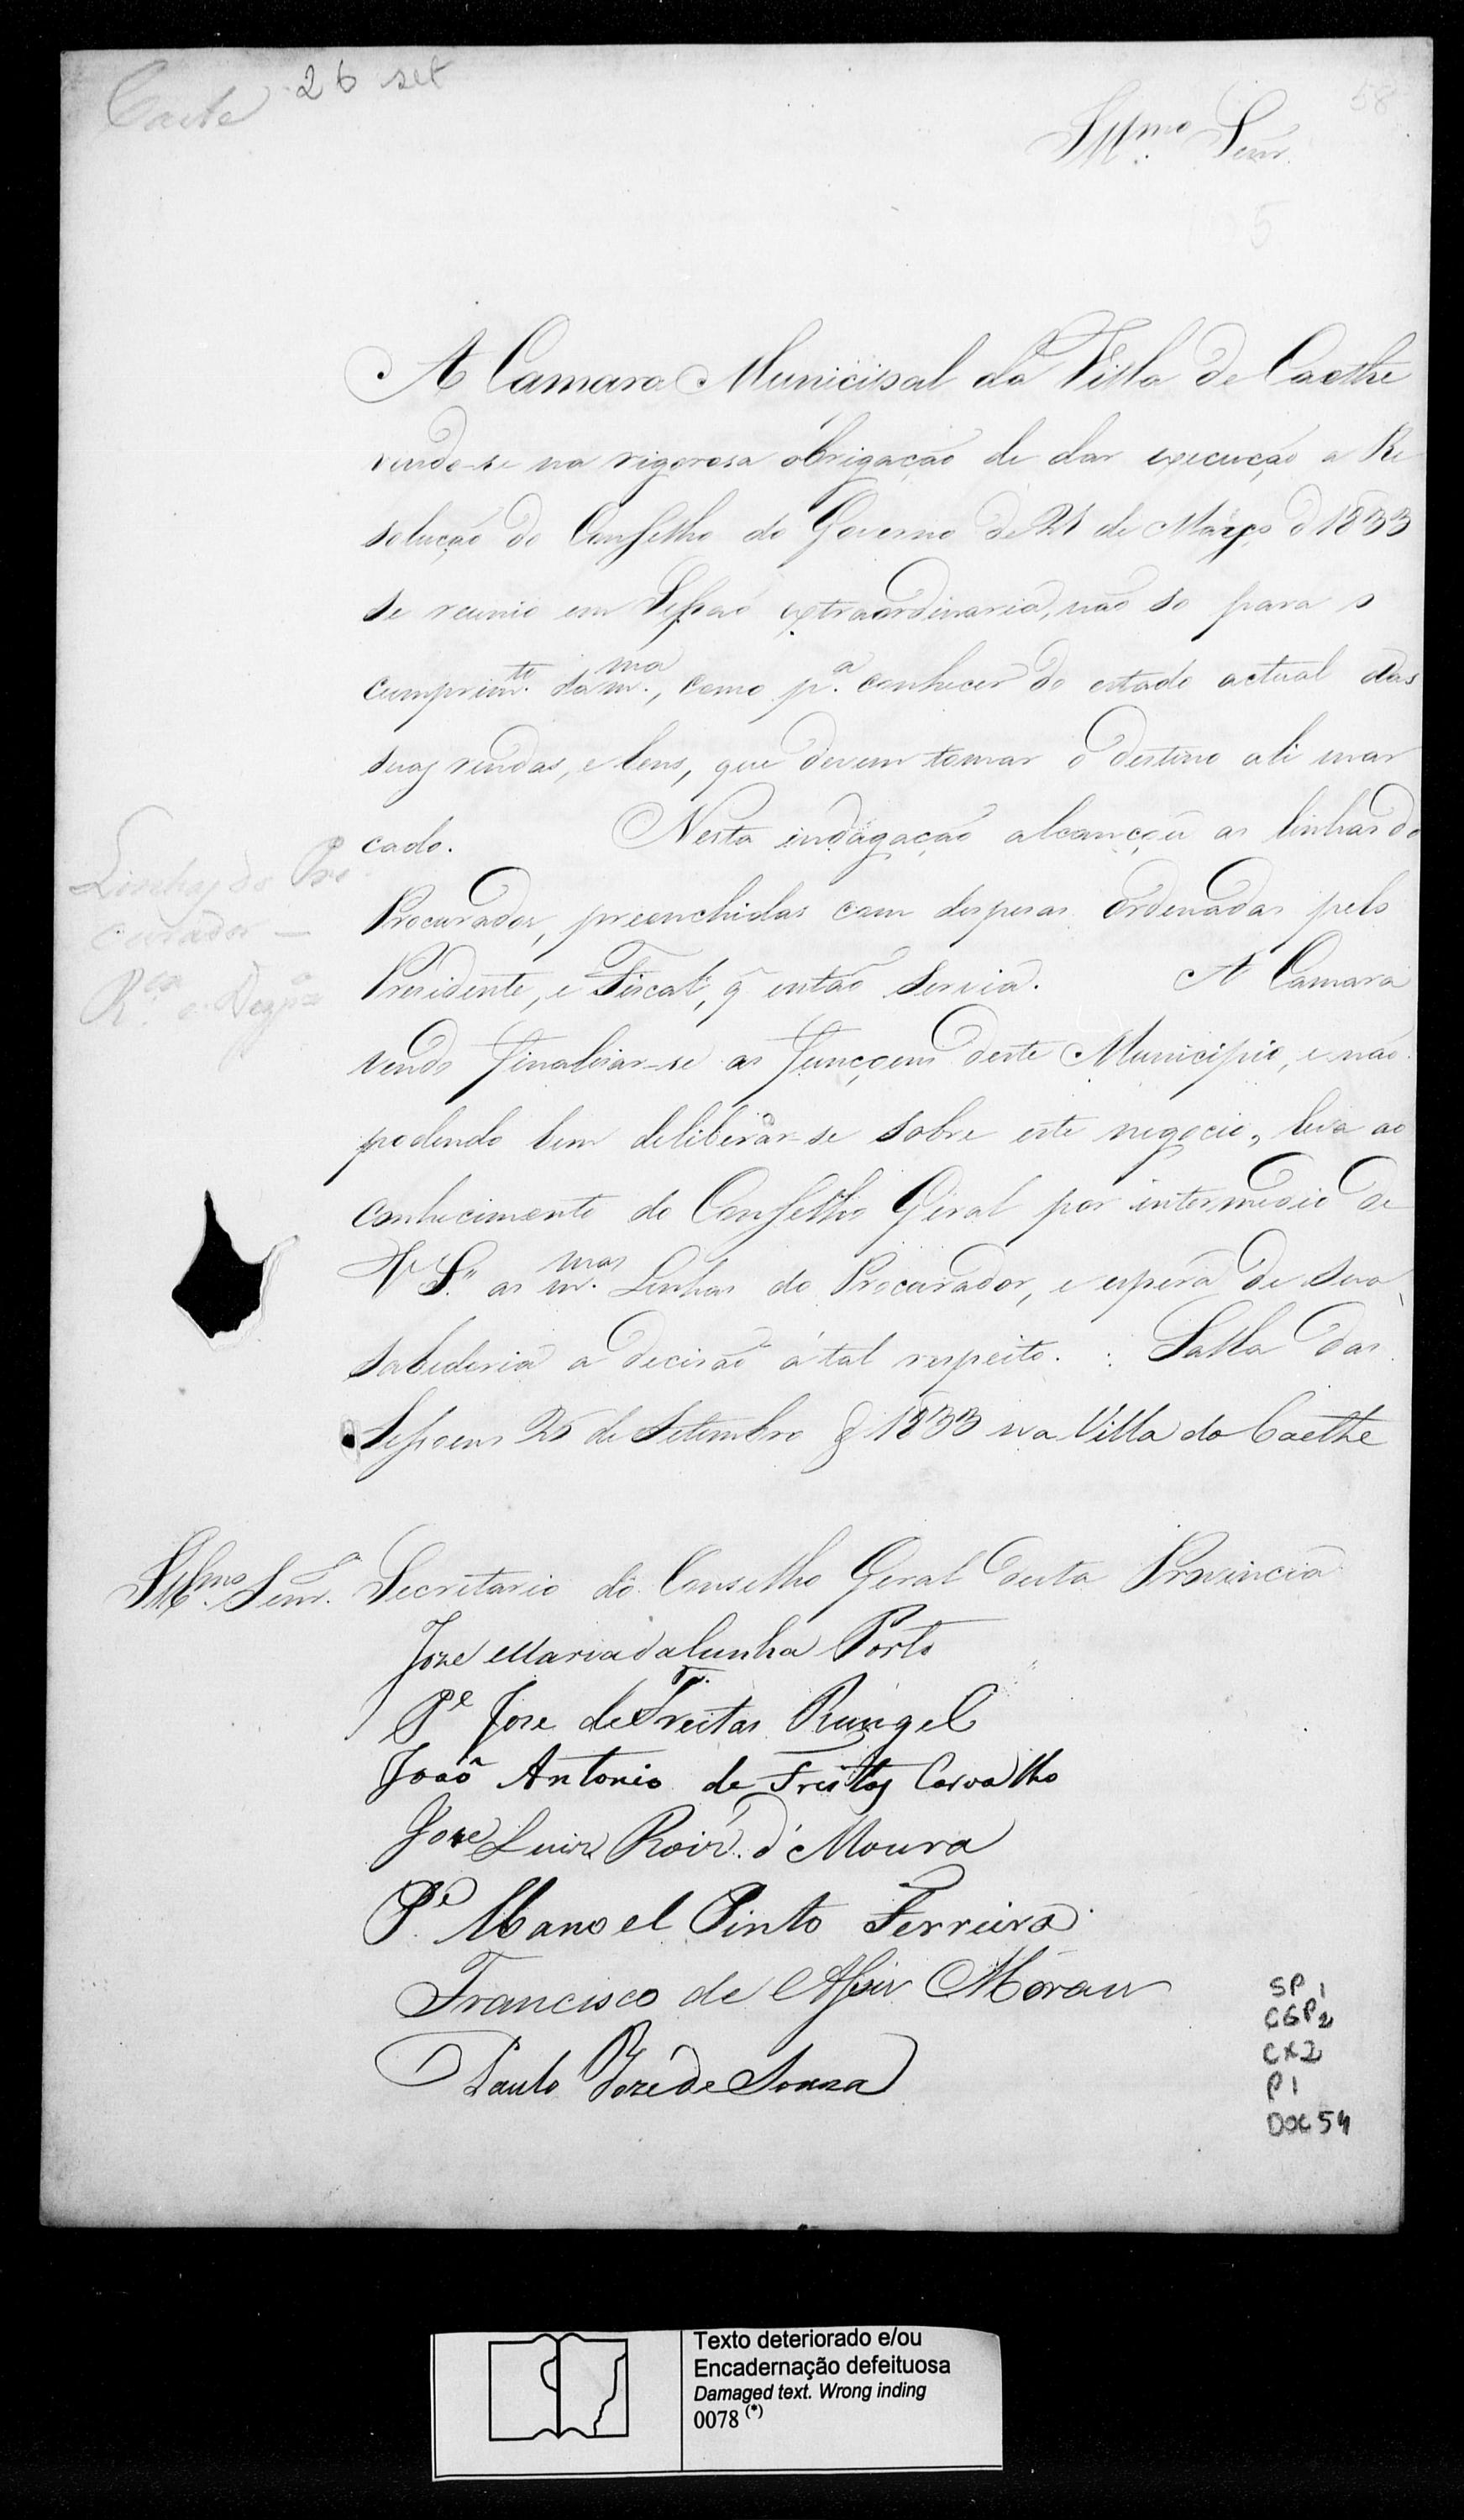 Caeté 26 set
58
Illmo. Senr.
A Camara Municipal da Villa de Caethe
vendo-se na rigorosa obrigação de dar execução a Re
solução do Conselho do Governo de 21 de Março d 1833
se reunio em Sessaõ extraordinaria, não so para o
cumprimto. da mma., como pa. conhecer do estado actual das
suas rendas, e bens, que devem tomar o destino ali mar
cado. Nesta indagação alcançou as linhas do
Procurador, preenchidas com despesas ordenadas pelo
Presidente, e Fiscal, q̃ então servia. A Camara
vendo finalisar-se as funçoens deste Municipio, e não
podendo bem deliberar-se sobre este negocio, leva ao
conhecimento do Conselho Geral por intermedio de
V S.ª as mmas. Linhas do Procurador, e espera de sua
sabedoria a decisão á tal respeito. Salla das
Sessoens 25 de Setembro d 1833 na Villa do Caethe
Linhas do Pro
curador —
Illmo. Senr. Secretario do Conselho Geral desta Provincia
Joze Maria da Cunha Porto
Pe. Joze de Freitas Rangel
João Antonio de Freitas Carvalho
Joze Luiz Roiz. d' Moura
Pe. Manoel Pinto Ferreira
Francisco de Assis Moraes
Paulo Jozé de Souza
SP 1
CGP2
CX2
P1
DOC 54
Texto deteriorado e/ou
Encadernação defeituosa
Damaged text. Wrong inding
0078 (*)